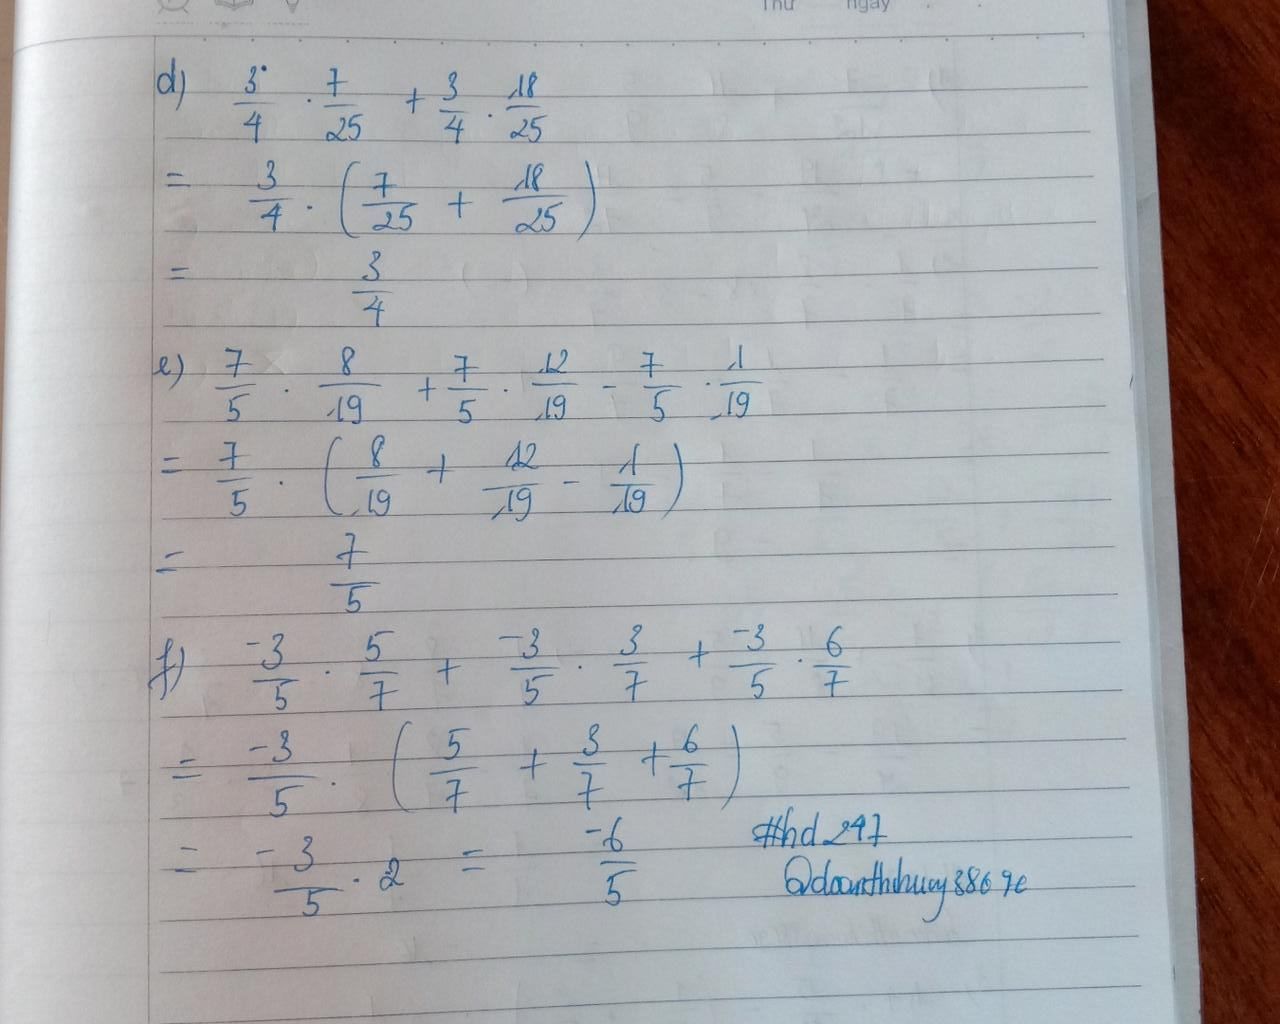 Thứ ngày
d) 3/4 . 7/25 + 3/4 . 18/25
= 3/4 . (7/25 + 18/25)
= 3/4
e) 7/5 . 8/19 + 7/5 . 12/19 - 7/5 . 1/19
= 7/5 . (8/19 + 12/19 - 1/19)
= 7/5
f) -3/5 . 5/7 + -3/5 . 3/7 + -3/5 . 6/7
= -3/5 . (5/7 + 3/7 + 6/7)
= -3/5 . 2 = -6/5
#hd247